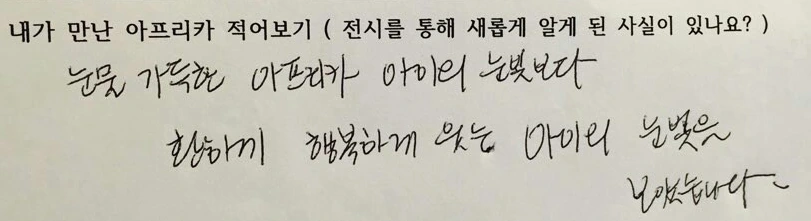 내가 만난 아프리카 적어보기 ( 전시를 통해 새롭게 알게 된 사실이 있나요? )
눈물 가득한 아프리카 아이의 눈빛보다
환하게 행복하게 웃는 아이의 눈빛을
보았습니다.